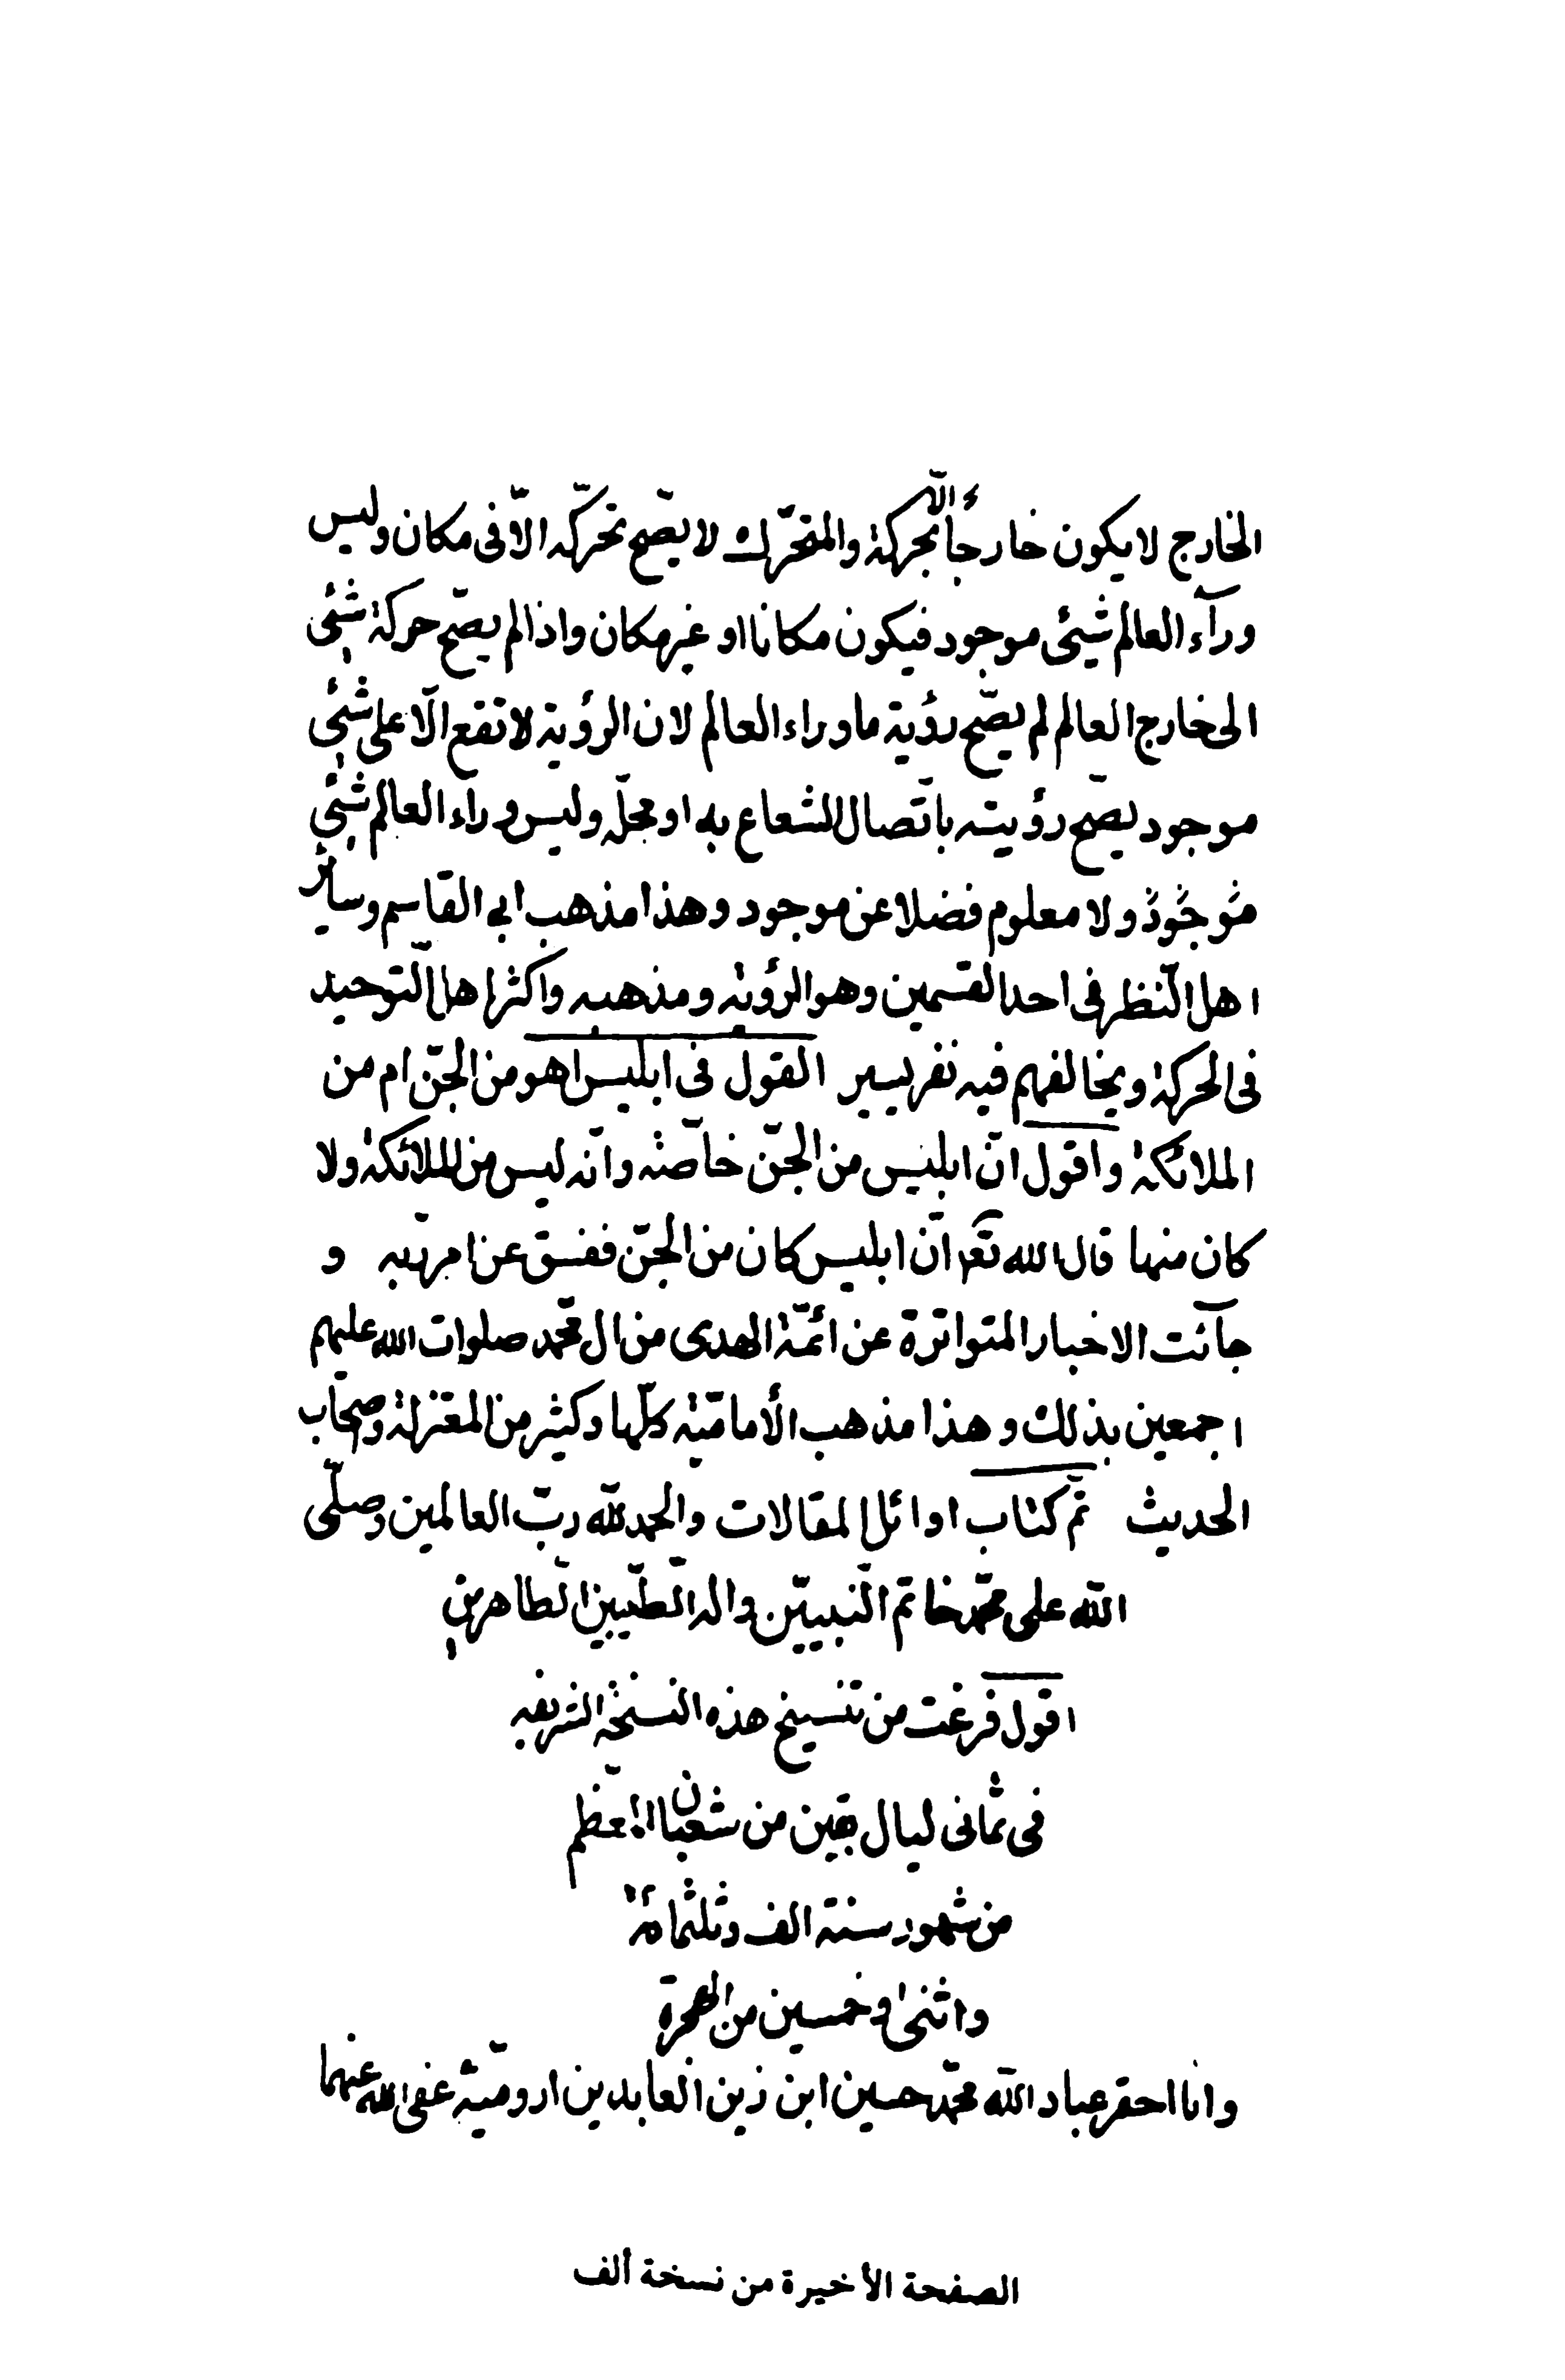 الخارج لا يكون خارجاً الّا بحركة والمتحرّك لا يصّح تحرّكه الّا فى مكان وليس
ورآء العالم شيئ موجود فيكون مكانا او غير مكان واذا لم يصّح حركة شيئ
الى خارج العالم لم يصّح رؤية ما وراء العالم لان الرؤية لا تقع الّا على شيئ
موجود يصّح رؤيته باتّصال الشعاع به او بمحلّه وليس وراء العالم شيئ
موجود ولا معلوم فضلا عن موجود وهذا مذهب ابى القاسم وسائر
اهل النّظر فى احد القسمين وهو الرؤية ومذهبه واكثر اهل التّوحيد
فى الحركة ويخالفهم فيه نفر يسير القول فى ابليس اهو من الجنّ ام من
الملائكة واقول انّ ابليس من الجنّ خاصّته وانّه ليس من الملائكة ولا
كان منها قال الله تعم انّ ابليس كان من الجنّ ففسق عن امر ربّه و
جآئت الاخبار المتواترة عن ائمّة الهدى من ال محمّد صلوات الله عليهم
اجمعين بذلك وهذا مذهب الأماميّة كلّها وكثير من المعتزلة وصحّاب
الحديث تمّ كتاب اوائل المقالات والحمد للّه ربّ العالمين وصلّى
اللّه على محمّد خاتم النّبييّن واله الطّيبين الطّاهرين
اقول فرغت من تنسيخ هذه النسخة الشريفه
فى ثمانى ليال بقين من شعبان المعظّم
من شهور سنة الف وثلثمائة
واثنى وخمسين من الهجرة
وانا احقر عباد اللّه محمّد حسين ابن زين العابدين ارومّية عفى الله عنهما
الصفحة الأخيرة من نسخة ألف